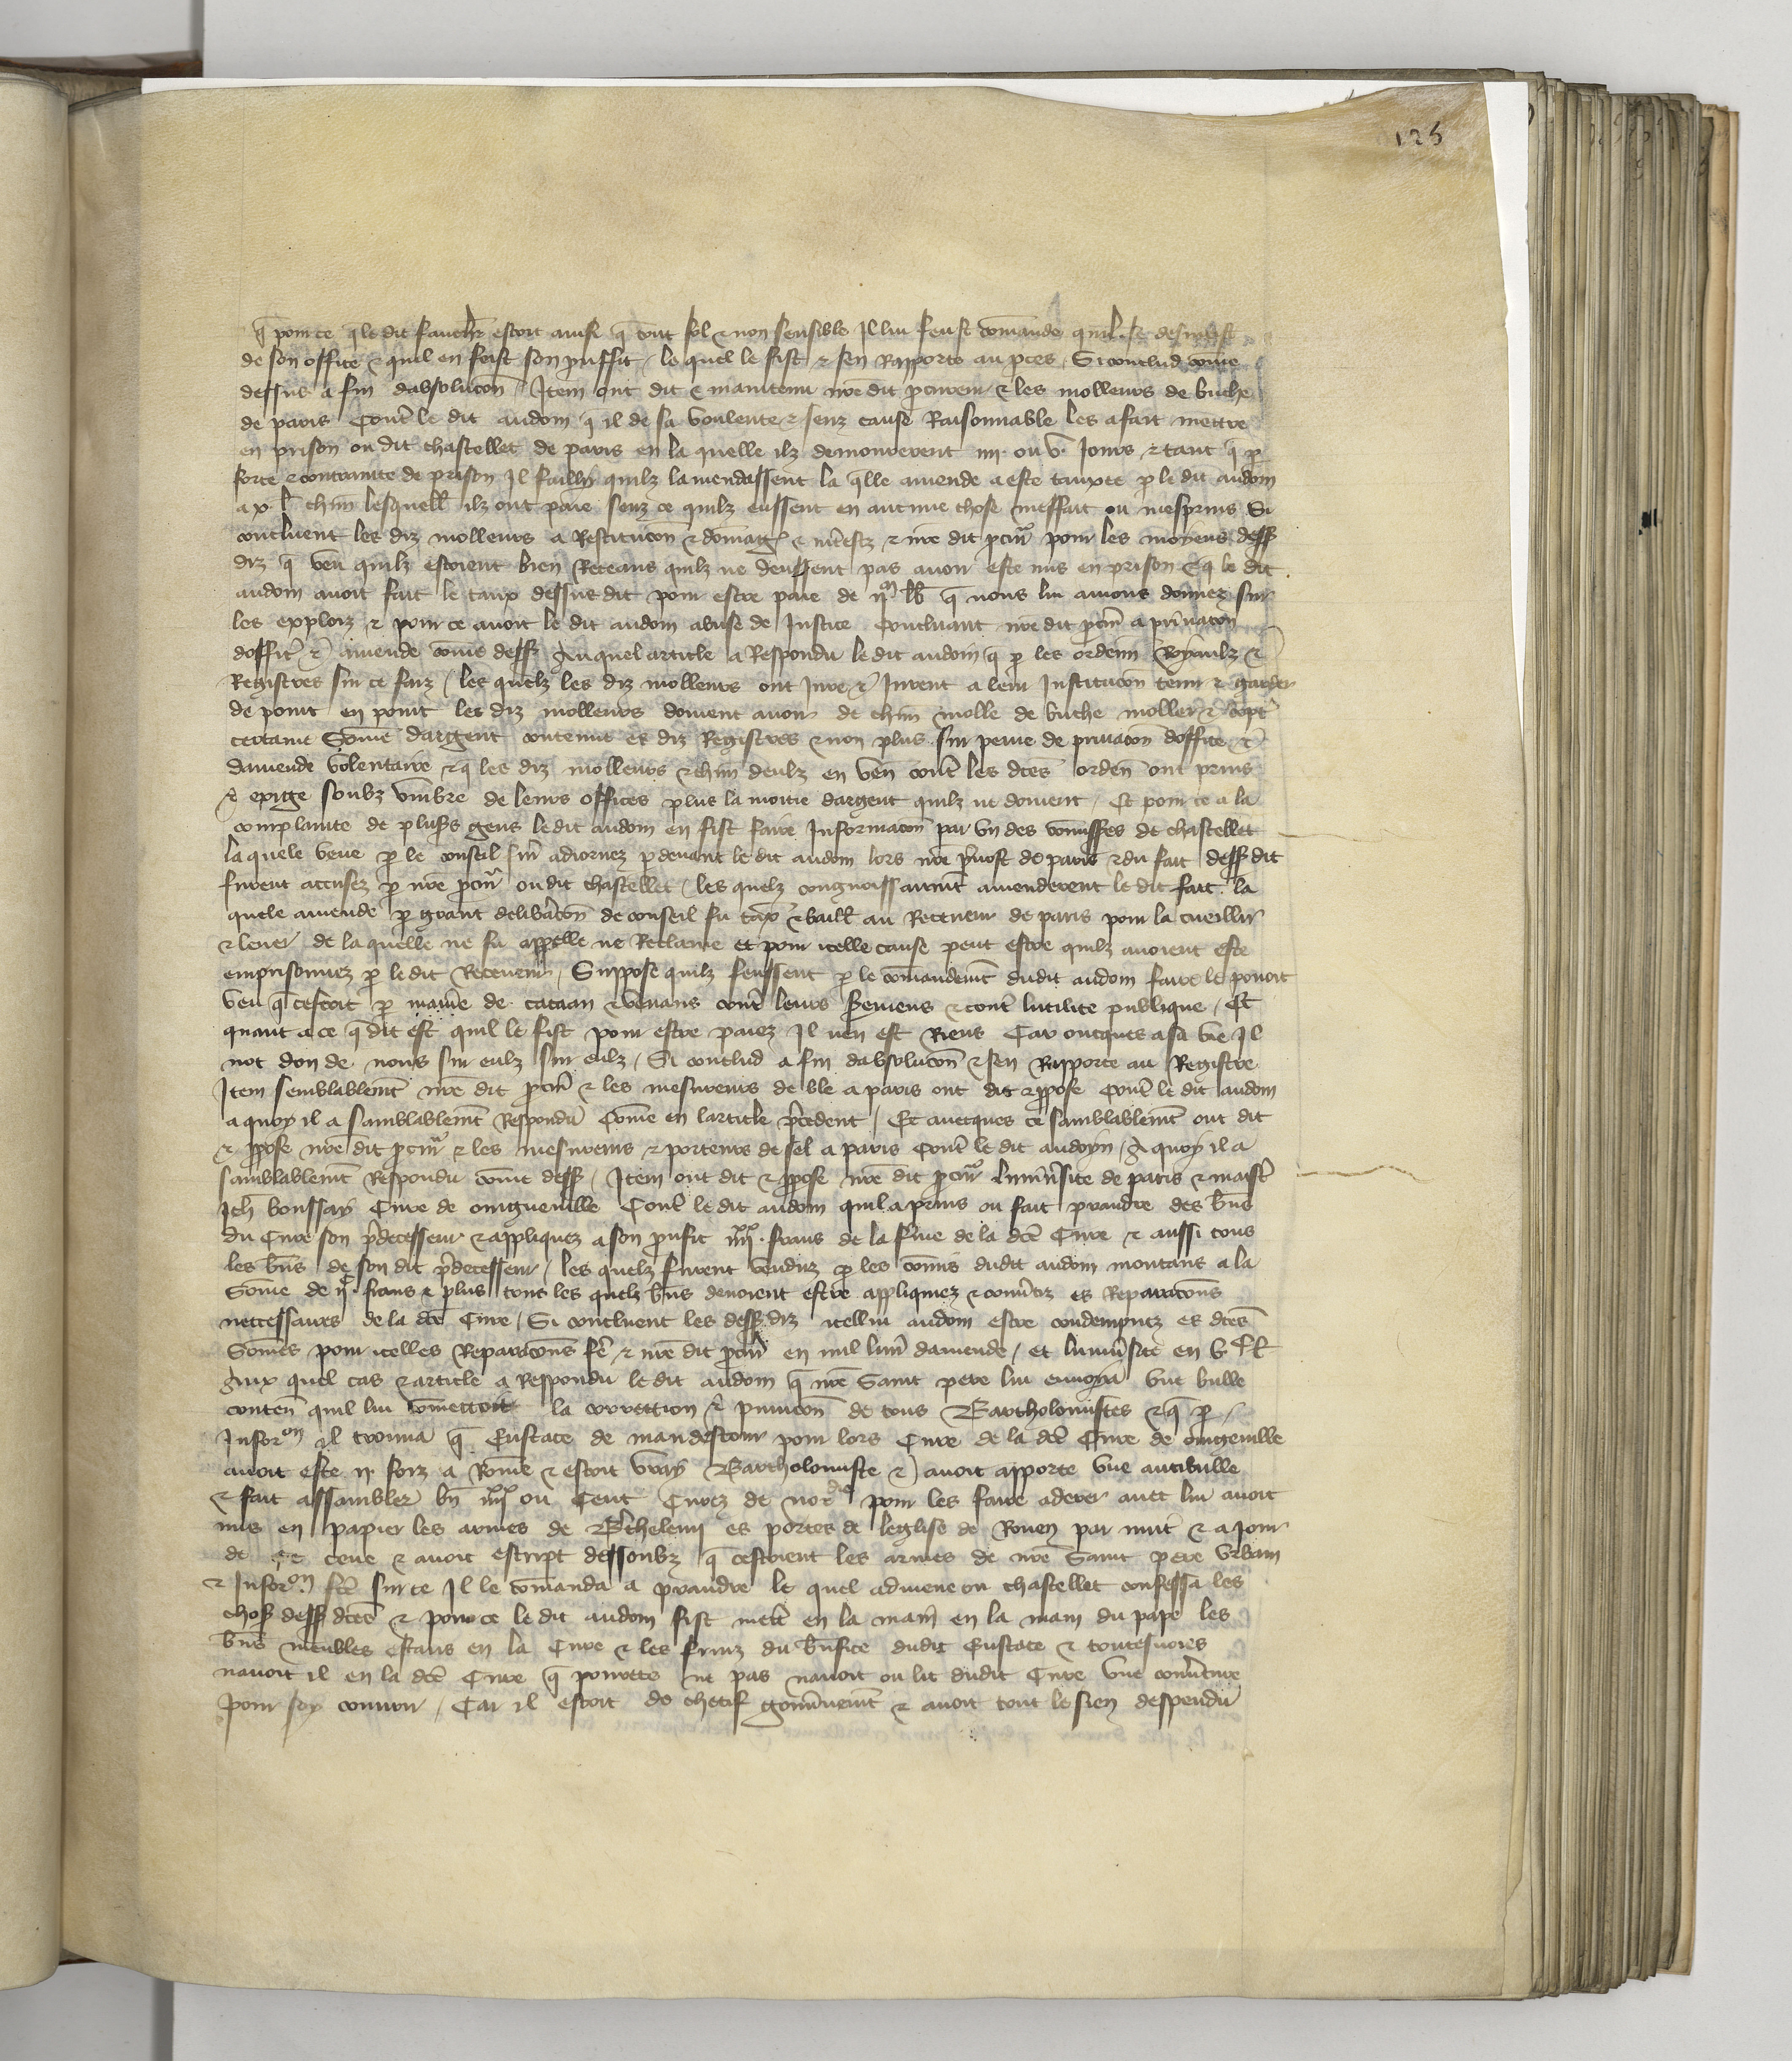 125
q̄ pour ce q̄ le dit fauch̄z estoit ainsi q̄ tout fol & non sensible Il lui feust cōmande quil se desmeist
de son office & quil en feist son prouffit / le quel le fist & sen Rapporte au p̄ces / Si conclud cōme
dessus a fin dabsolucōn / Item ont dit & maintenu n̄re dit p̄cureur & les molleurs de buche
de paris Cont̄ le dit audoin q̄ il de sa voulente & senz cause Raisonnable les a fait mettre
en prison ou dit chastellet de paris en la quelle ilz demourerent iiii. ou v. Jours & tant q̄ p̄
force & contrainte de prison Il failly quilz lamendassent la q̄lle amende a este tauxee p̄ le dit audoin
a x l̄ch̄m lesquell̄ ilz ont paie senz ce quilz eussent en aucune chose meffait ou mesprins Si
concluent les diz molleurs a Restitucōn & dōmaḡ & int̄estz & n̄re dit p̄cur̄ pour les moiens dess̄
diz q̄ veu quilz estoient bien Receans quilz ne deussent pas auoir este mis en prison & q̄ le dit
audoin auoit fait le taux dessus dit pour estre paie de ii̅ᵐ l̄b̄ q̄ nous lui auons donnez sur
les exploiz & pour ce auoit le dit audoin abuse de Justice Concluant n̄re dit p̄cur̄ a priuacōn
doffic̄ & amende cōme dess̄ Auquel article a Respondu le dit audoin q̄ p̄ les ordenn̄ Royaulz &
Registres sur ce faiz / les quelz les diz molleurs ont Jure & Jurent a leur Institucōn tenir & garder
de point en point les diz molleurs doiuent auoir de ch̄un molle de buche moller & cōpt̄
certaine Sōme dargent contenue es diz Registres & non plus sur peine de priuacōn doffice &
damende volentaire & q̄ les diz molleurs & ch̄un deulz en ven̄ cont̄ les dc̄es orden̄ ont prins
& exige soubz vmbre de leurs offices plus la moitie dargent quilz ne doiuent / Et pour ce a la
complainte de plus̄s gens le dit audoin en fist faire Informacōn par vn des cōmiss̄es de chastellet
la quele veue p̄ le conseil fur̄ adiornez p̄deuant le dit audoin lors n̄re p̄uost de paris & du fait dess̄ dit
furent accusez p̄ n̄re p̄cur̄ ou dit chastellet / les quelz congnoissaum̄t amenderent le dit fait la
quele amende p̄ grant delib̄acōn de conseil fu tax̄ & baill̄ au Receueur de paris pour la cueillir
& leuer de la quelle ne fu appelle ne Reclame et pour icelle cause peut estre quilz auoient este
emprisonnez p̄ le dit Receueur / Suppose quilz feussent p̄ le cōmandem̄t dudit audoin faire le pouoit
veu q̄ cestoit p̄ maniē de & venans cont̄ leurs s̄eremens & cont̄ lutilite publique / Et
quant a ce q̄ dit est quil le fist pour estre paiez Il nen est Riens Car oncques a sa vie Il
not don de nous sur eulz sur eulz / Si conclud a fin dabsolucōn & sen Rapporte au Registre
Item semblablem̄t n̄re dit p̄cur̄ & les mesureurs de ble a paris ont dit & p̄pose Cont̄ le dit audoin
a quoy il a samblablem̄t Respondu Cōme en larticle p̄cedent / Et auecques ce samblablem̄t ont dit
& p̄pose n̄re dit p̄cur̄ & les mesureurs & porteurs de sel a paris Cont̄ le dit audoyn / A quoy il a
samblablem̄t Respondu cōme dess̄ / Item ont dit & p̄pose n̄re dit p̄cur̄ Luniu̅site de paris & maistr̄
Jeh̄ boussay Cure de Cont̄ le dit audoin quil a prins ou fait prandre des b̄ns
du Cure son p̄decesseur & appliquez a son p̄ufit iiii̅ˣˣ. frans de la f̄me de la dc̄e Cure & aussi tous
les b̄ns de son dit p̄decesseur / les quelz furent venduz p̄ les cōmis dudit audoin montans a la
Sōme de ii̅ᶜ. frans & plus tous les quelz b̄ns deuoient estre appliquez & conu̅tiz es Reparacōns
neccessaires de la dc̄e Cure / Si concluent les dess̄ diz icellui audoin estre condempnez es dc̄es
Sōmes pour icelles Reparacōns fē & n̄re dit p̄cur̄ en mil liur̄ damende / et luniu̅site en v.ᶜ l̄
Aux quel cas & article a Respondu le dit audoin q̄ n̄re Saint pere lui enuoya vne bulle
conten̄ quil lui cōmettoit la correction & punicōn de tous Bartholomistes & q̄ p̄
Inforᵒⁿ il trouua q̄ Eustace de pour lors Cure de la dc̄e Cure de
auoit este ii. foiz a Rome & estoit vray Bartholomiste & auoit apporte vne antibulle
& fait assambler bn̄ iiii̅ˣˣ ou Cent Curez de norᵈⁱᵉ pour les faire aderer auec lui auoit
mis en papier les armes de B̄thelemi es portes de leglise de Rouen par nuit & a jour
de & auoit escript dessoubz q̄ cestoient les armes de n̄re Saint pere Vrbain
& Inforᵒⁿ fc̄e sur ce Il le cōmanda a prandre le quel admene ou chastellet confessa les
chos̄ dess̄ dc̄es & pour ce le dit audoin fist mett̄ en la main̄ en la main du pape les
b̄ns meubles estans en la Cure & les fruiz du b̄nfice dudit Eustace & toutesuoies
nauoit il en la dc̄e Cure q̄ pourete ne pas nauoit ou lit dudit Cure vne couu̅ture
pour soy couurir / Car il estoit de chetif gouu̅nem̄t & auoit tout le sien despendu